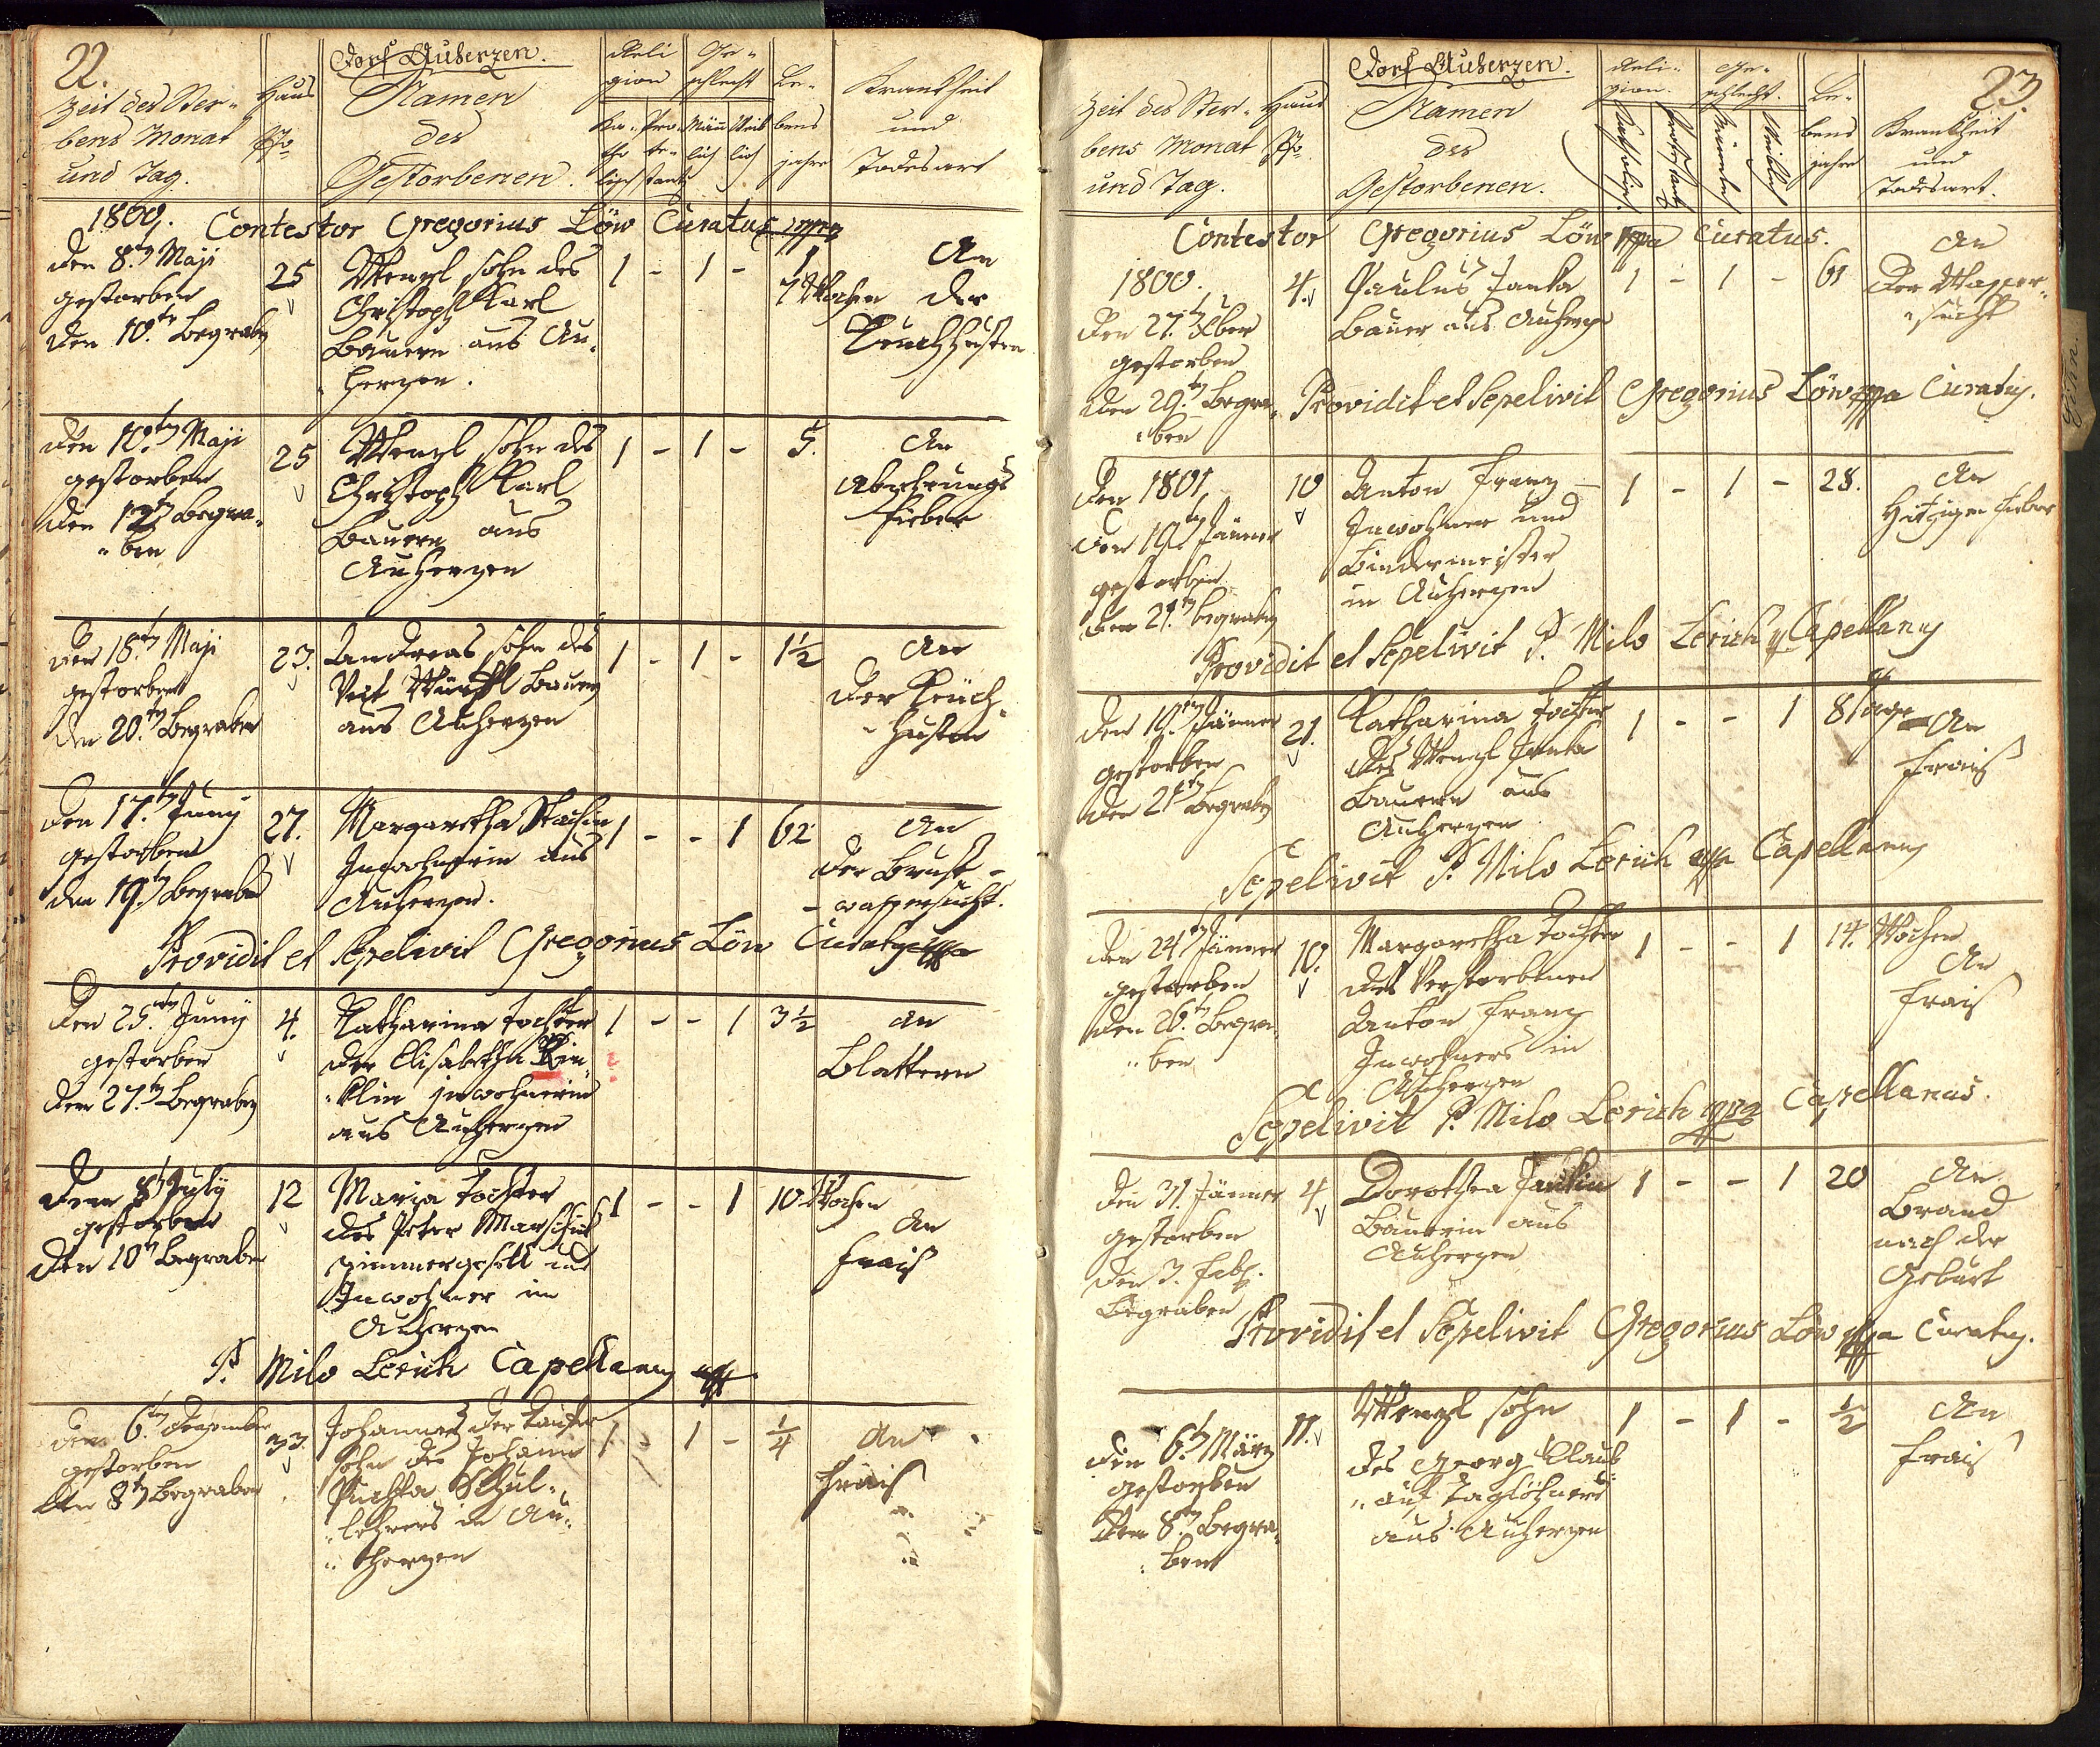 22.
Dorf Auherzen.
Zeit des Ster-
bens Monat
und Tag.
Haus
Nro
Namen
des
Gestorbenen.
Reli
gion
Ge-
schlecht
Ka-
tho
lisch
Pro-
te-
stant
Män
lich
Weib
lich
Le-
bens
jahre
Krankheit
und
Todesart
1800.
Contestor Gregorius Löw Curatus mppa
den 8.t Maji
gestorben
den 10.te Begraben
25
Wenzl sohn des
Christoph Karl
Bauern aus Au-
herzen.
1 - 1 -
7 Wochen
An
der
Keuchhusten
den 10.ten Maji
gestorben
den 12ten Begra-
ben
25
Wenzl sohn des
Christoph Karl
Bauern aus
Auherzen
1 - 1 -
5.
An
Abzehrungs
fieber
den 18.ten Maji
gestorben
den 20.ten Begraben
23.
Andreas sohn des
Veit
Bauern
aus Auherzen
1 - 1 -
1½
An
der Keuch-
husten
den 17.ten Juny
gestorben
den 19.ten Begraben
27.
Margaretha
Inwohnerin aus
Auherzen.
1 - - 1
62
An
der Brust-
wassersucht.
Providit et Sepelivit Gregorius Löw Curatus mppa
den 25.ten Juny
gestorben
den 27.ten Begraben
4.
Katharina tochter
der Elisabetha Kin-
klin inwohnerin
aus Auherzen
1 - - 1
3½
an
Blattern
den 8t July
gestorben
den 10t Begraben
12
Maria tochter
des Peter Marschik
zimmergesell und
Inwohner in
Auherzen
1 - - 1
10 Wochen
An
frais
P. Milo Lerich Capellanus mppa
den 6.ten Dezember
gestorben
den 8ten Begraben
33.
Johannes der Taufer
Sohn des Johann
Puchta Schul-
lehrers in Au-
herzen
1 - 1 -
¼
An
frais
23.
Dorf Auherzen.
Zeit des Ster-
bens Monat
und Tag.
Haus
Nro
Namen
des
Gestorbenen.
Reli-
gion.
Ge-
schlecht.
Katholisch
Protestant
Männlich
Weiblich
Le-
bens
jahre
Krankheit
und
Todesart.
Contestor Gregorius Löw mppa Curatus.
1800.
den 27.t Xber
gestorben
den 29.ten Begra-
ben
4.
Paulus Janka
Bauer aus Auherzen
1 - 1 -
61
An
der Wasser-
sucht
Providit et Sepelivit Gregorius Löw mppa Curatus.
den 1801
den 19.ten Jänner
gestorben
den 21.ten begraben
10
Anton Franz
Inwohner und
Bindermeister
in Auherzen
1 - 1 -
28.
An
Hitzigen Fieber
Providit et Sepelivit P. Milo Lerich Capellanus
den 19.ten Jänner
gestorben
den 21ten Begraben
21.
Katharina tochter
des Wenzl Janka
Bauern aus
Auherzen
1 - - 1
8 Tage
An
frais
Sepelivit P. Milo Lerich mppa Capellanus
den 24ten Jänner
gestorben
den 26.t Begra-
ben
10.
Margaretha tochter
des Verstorbenen
Anton Franz
Inwohners in
Auherzen
1 - - 1
14. Wochen
An
frais
Sepelivit P. Milo Lerich mppa Capellanus.
den 31. Jänner
gestorben
den 3. Feb.
Begraben
4.
Dorothea Jankin
Bäuerin aus
Auherzen
1 - - 1
20
An
Brand
nach der
Geburt
Providit et Sepelivit Gregorius Löw mppa Curatus.
den 6.t März
gestorben
den 8ten Begra-
ben
11.
Wenzl sohn
des Georg Klaub-
auf Taglöhners
aus Auherzen
1 - 1 -
½
An
frais